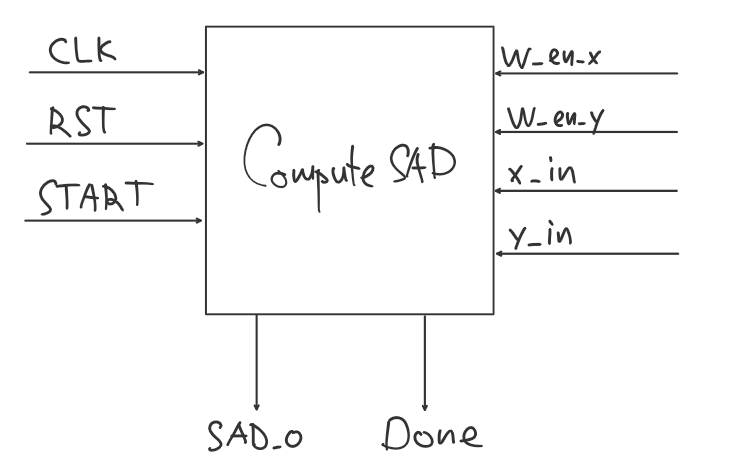 CLK
RST
START
Compute SAD
W_en_x
W_en_y
x_in
y_in
SAD_o
Done